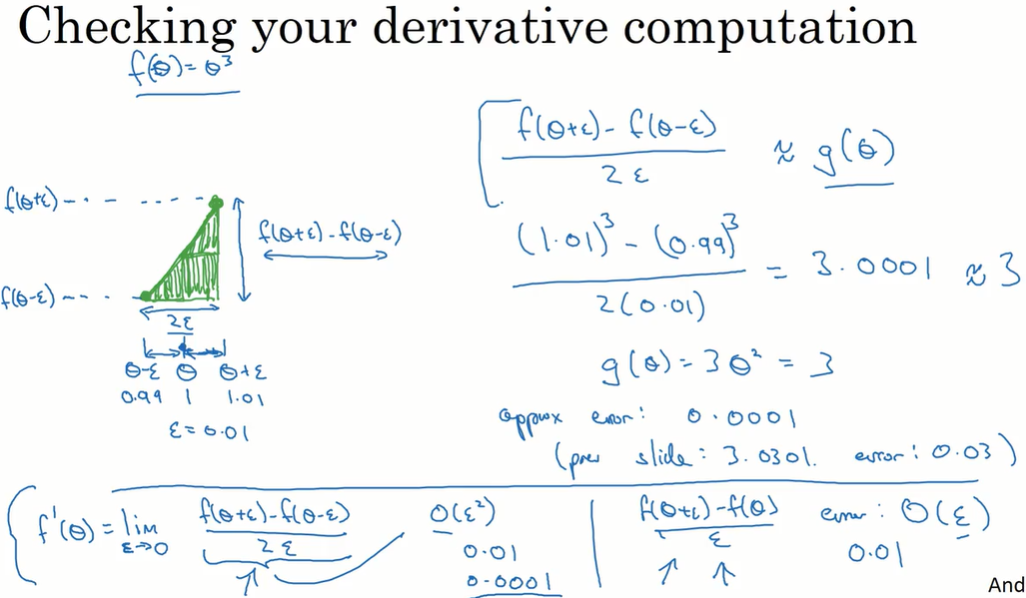 Checking your derivative computation
f(θ) = θ³
f(θ+ε) - f(θ-ε)
2ε
≈ g(θ)
f(θ+ε)
f(θ+ε) - f(θ-ε)
(1.01)³ - (0.99)³
2(0.01)
= 3.0001 ≈ 3
f(θ-ε)
2ε
θ-ε θ θ+ε
0.99 1 1.01
ε = 0.01
g(θ) = 3θ² = 3
approx error: 0.0001
(prev slide: 3.0301. error: 0.03)
f'(θ) = lim ε→0
f(θ+ε) - f(θ-ε)
2ε
O(ε²)
0.01
0.0001
f(θ+ε) - f(θ)
ε
error: O(ε)
0.01
And